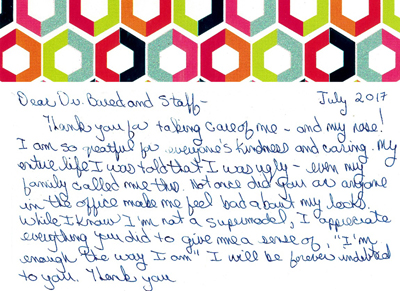 Dear Dr. Bured and Staff- July 2017
Thank you for taking care of me - and my nose!
I am so greatful for everyone's kindness and caring. My
entire life I was told that I was ugly - even my
family called me this. Not once did you or anyone
in the office make me feel bad about my looks.
While I know I'm not a supermodel, I appreciate
everything you did to give me a sense of, "I'm
enough the way I am" I will be forever indebted
to you. Thank you